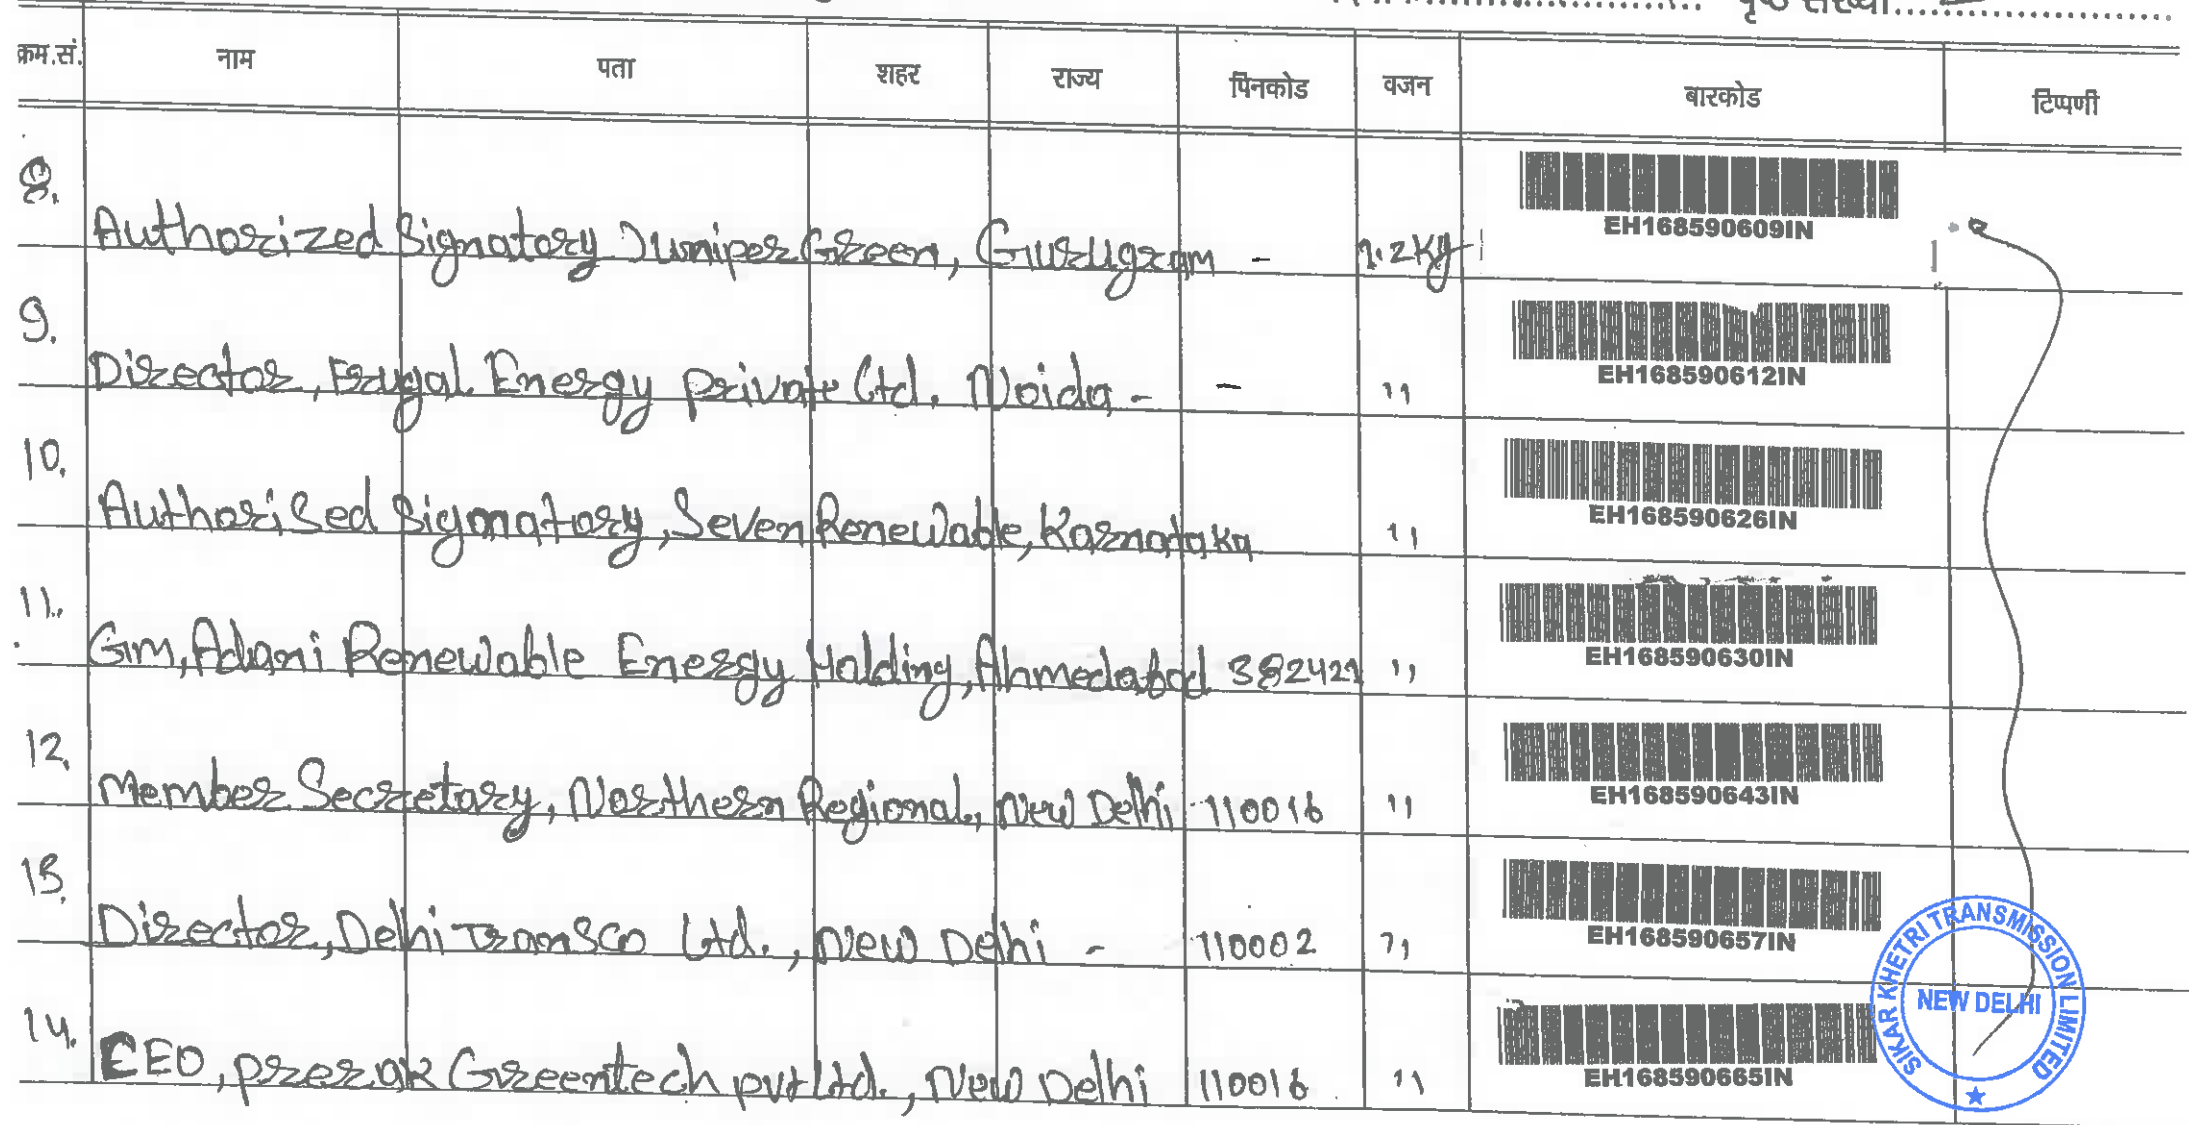 पृष्ठ संख्या
क्रम.सं. नाम पता शहर राज्य पिनकोड वजन बारकोड टिप्पणी
8. Authorized Signatory Juniper Green, Gurugram - 1.2kg EH168590609IN
9. Director, Frugal Energy private Ltd. Noida - - " EH168590612IN
10. Authorised Signatory, Seven Renewable, Karnataka " EH168590626IN
11. GM, Adani Renewable Energy Holding, Ahmedabad 382421 " EH168590630IN
12. Member Secretary, Northern Regional, New Delhi 110016 " EH168590643IN
13. Director, Delhi Transco Ltd., New Delhi - 110002 " EH168590657IN
14. CEO, prerak Greentech pvt Ltd., New Delhi 110016 " EH168590665IN
SIKAR KHETRI TRANSMISSION LIMITED
NEW DELHI